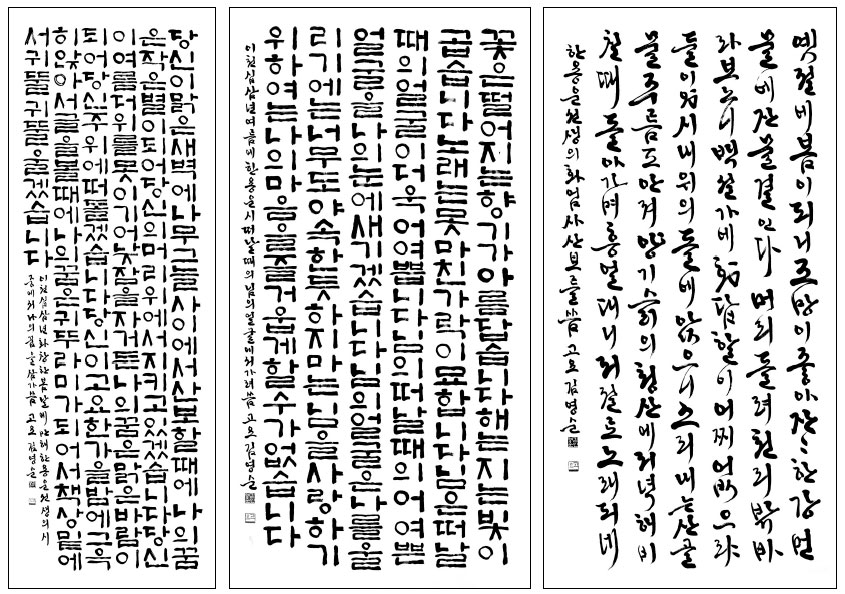 당신이맑은새벽에나무그늘사이에서산보할때에나의꿈
은작은별이되어당신의머리우에서지키고있겠습니다당신
이여름더위를못이기어낮잠을자거든나의꿈은맑은바람이
되어당신주우에떠돌겠습니다당신이고요한가을밤에그윽
히앉아서글을볼때에나의꿈은귀뚜라미가되어서책상밑에
서귀뚤귀뚤울겠습니다
이천십삼년화창한봄날에 만해한용운선생의시
중에서나의꿈을삼가씀 고요 김영순
꽃은떨어지는향기가아름답습니다해는지는빛이
곱습니다노래는못마친가락이묘합니다님은떠날
때의얼굴이더욱어여쁩니다님의떠날때의어여쁜
얼굴을나의눈에새기겠습니다님의얼굴은나를울
리기에는너무도야속한듯하지마는님을사랑하기
위하여는나의마음을즐거웁게할수가없습니다
이천십삼년여름에한용운시떠날때의님의얼굴에서가려씀 고요 김영순
옛절에봄이되니조망이좋아잔잔한강 빈
물에잔물결인다 머리들려천리밖바
라보느니백설가에화답할이어찌없으랴
둘이와서내위의돌에앉으니스쳐내는산골
물주름도안져 기슭의청산에저녁해비
칠때 돌아가며흥얼대니저절로노래되네
한용운선생의화엄사산보를씀 고요 김영순